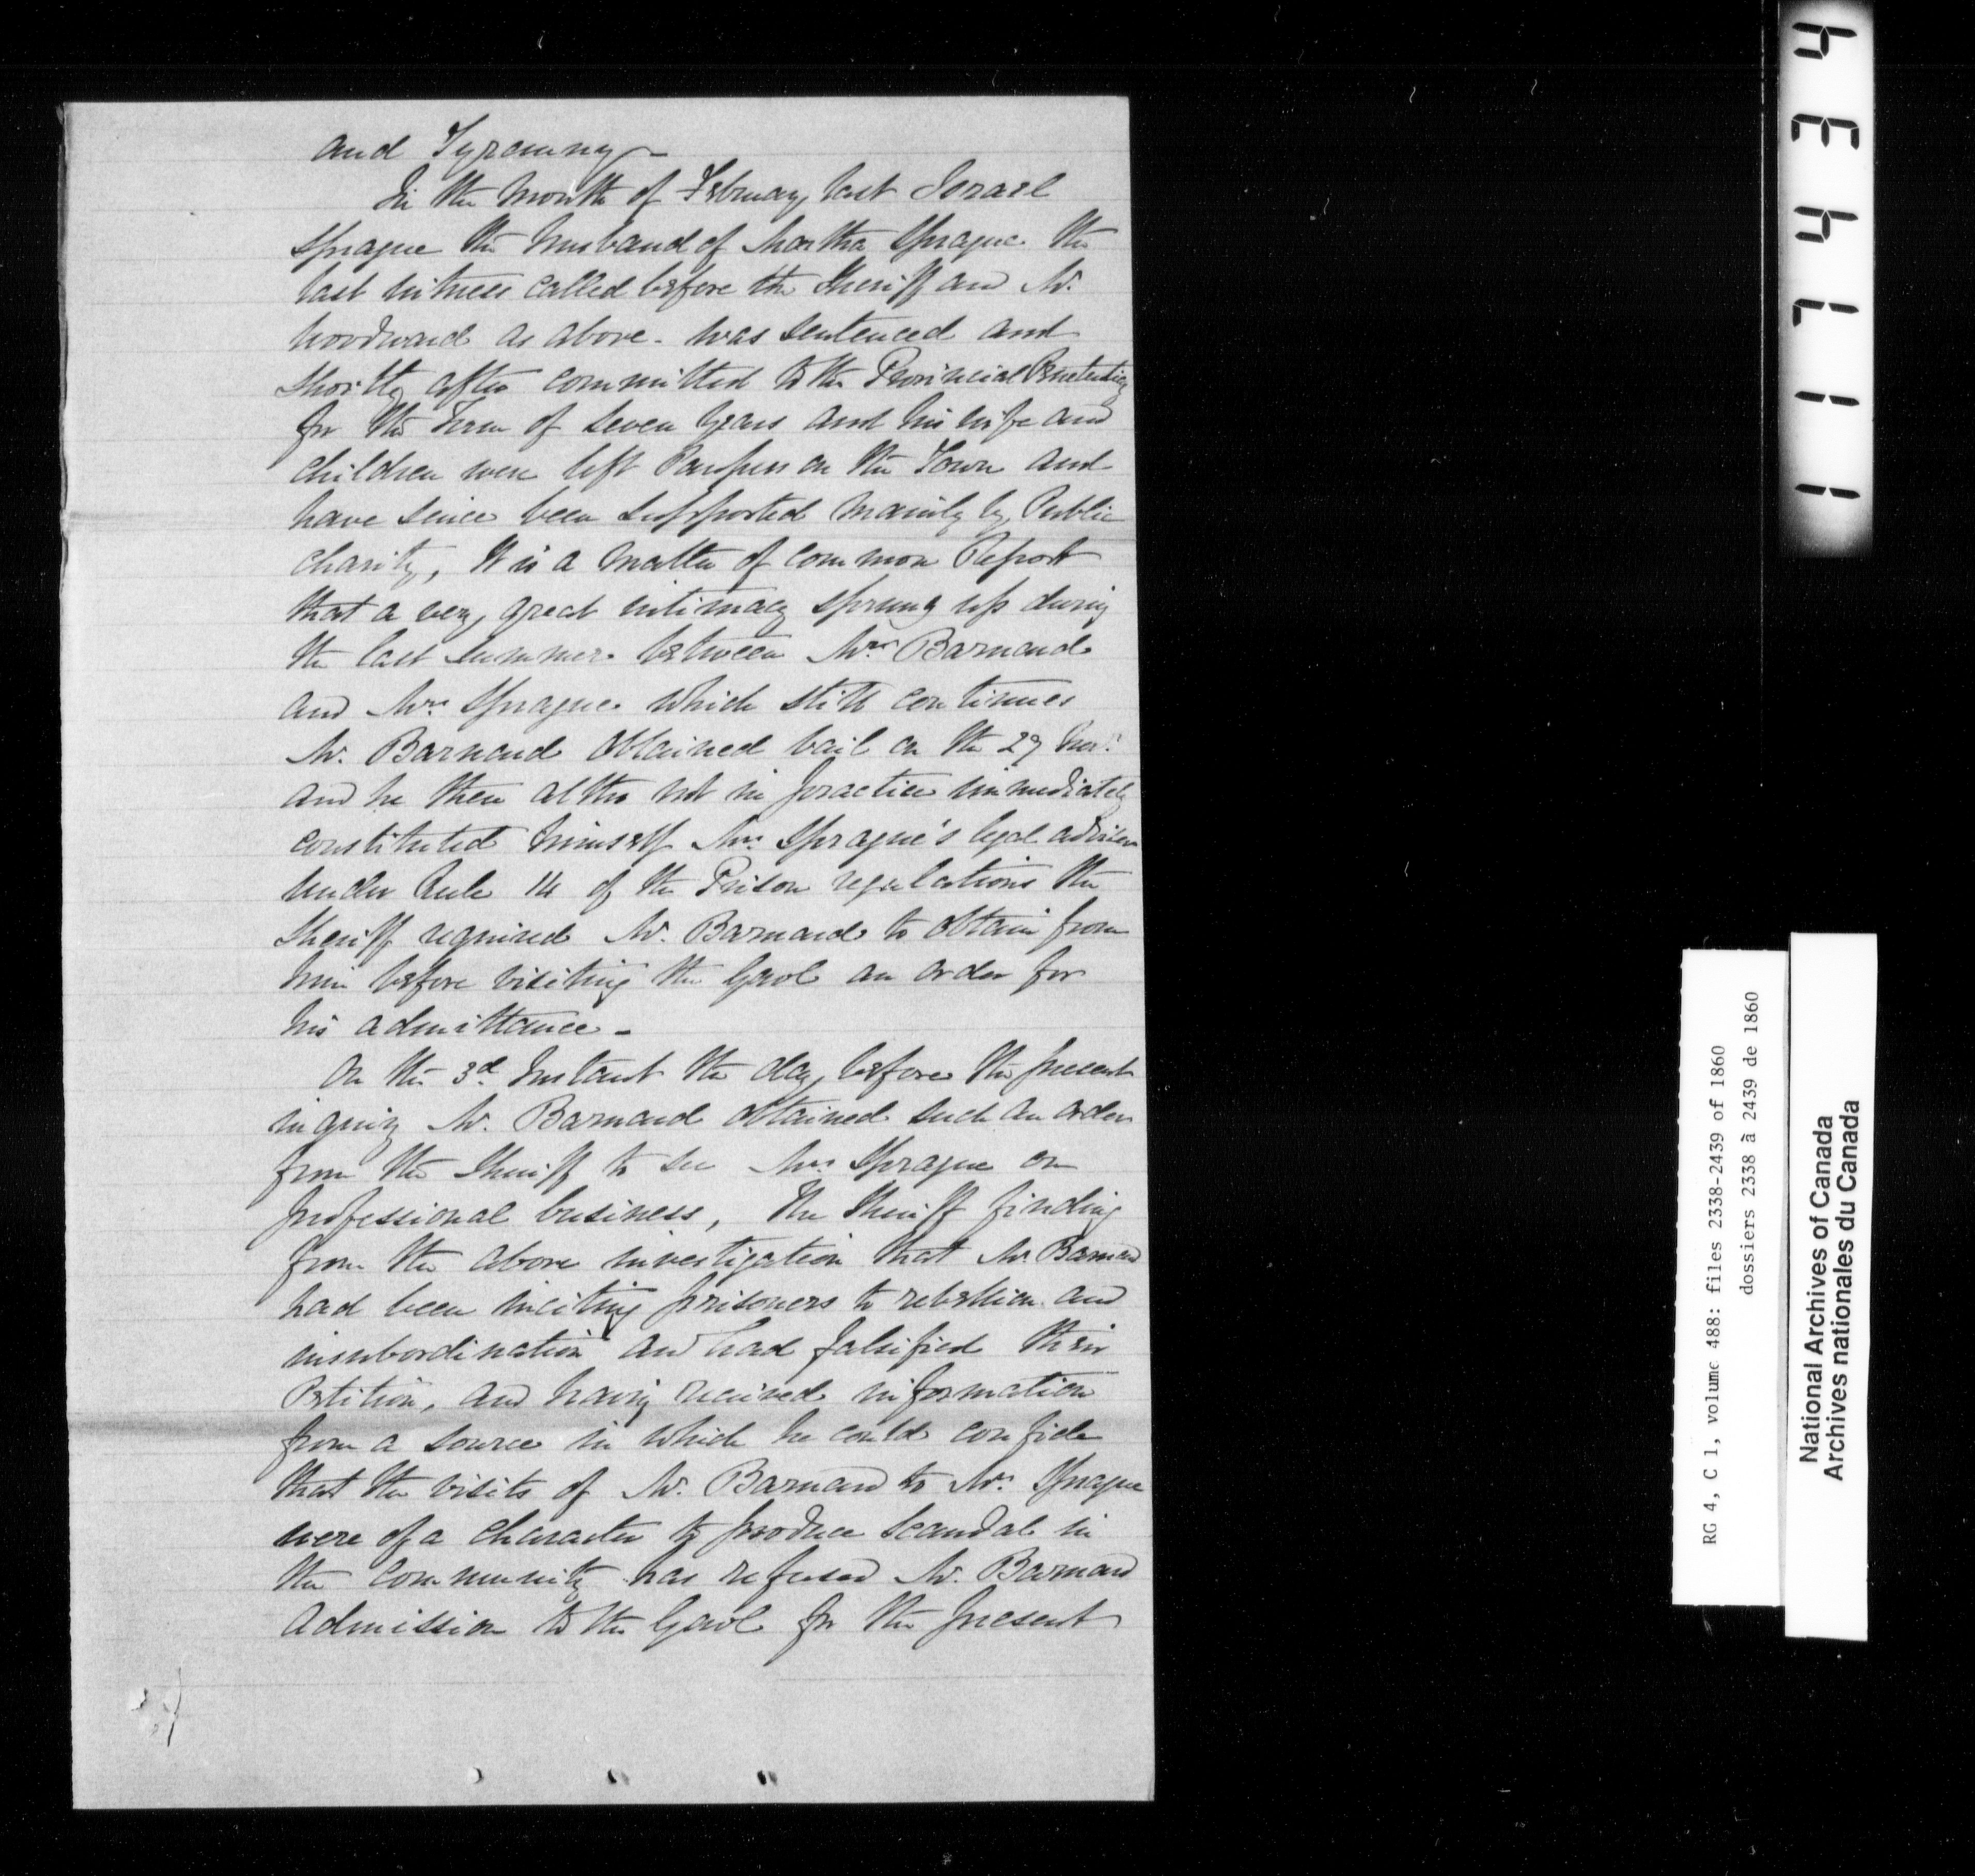 and Tyranny
In the month of February last Israel
Sprague the husband of Martha Sprague the
last witness called before the Sheriff and Mr.
Woodward as above - was sentenced and
shortly after committed to the Provincial Penetentiary
for the Term of Seven years and his wife and
children were left Paupers on the Town and
have since been supported mainly by Public
charity, It is a matter of common Report
that a very great intimacy sprung up during
the last summer between Mrs Barnard
and Mrs Sprague which still continues
Mr. Barnard obtained bail on the 29 Nov.
and he then altho not in practice immediately
constituted himself Mrs Sprague's legal adviser
Under Rule 14 of the Prison regulations the
Sheriff required Mr. Barnard to obtain from
him before visiting the Gaol an order for
his admittance -
On the 3d. Instant the day before the present
inquiry Mr. Barnard obtained such an order
from the Sheriff to see Mrs Sprague on
professional business, The Sheriff finding
from the above investigation that Mr. Barnard
had been inciting prisoners to rebellion and
insubordination and had falsified their
Petition, and having received information
from a source in which he could confide
that the visits of Mr. Barnard to Mrs Sprague
were of a character to produce scandal in
the community has refused Mr. Barnard
admission to the Gaol for the present
114734
RG 4, C 1, volume 488: files 2338-2439 of 1860
dossiers 2338 à 2439 de 1860
National Archives of Canada
Archives nationales du Canada